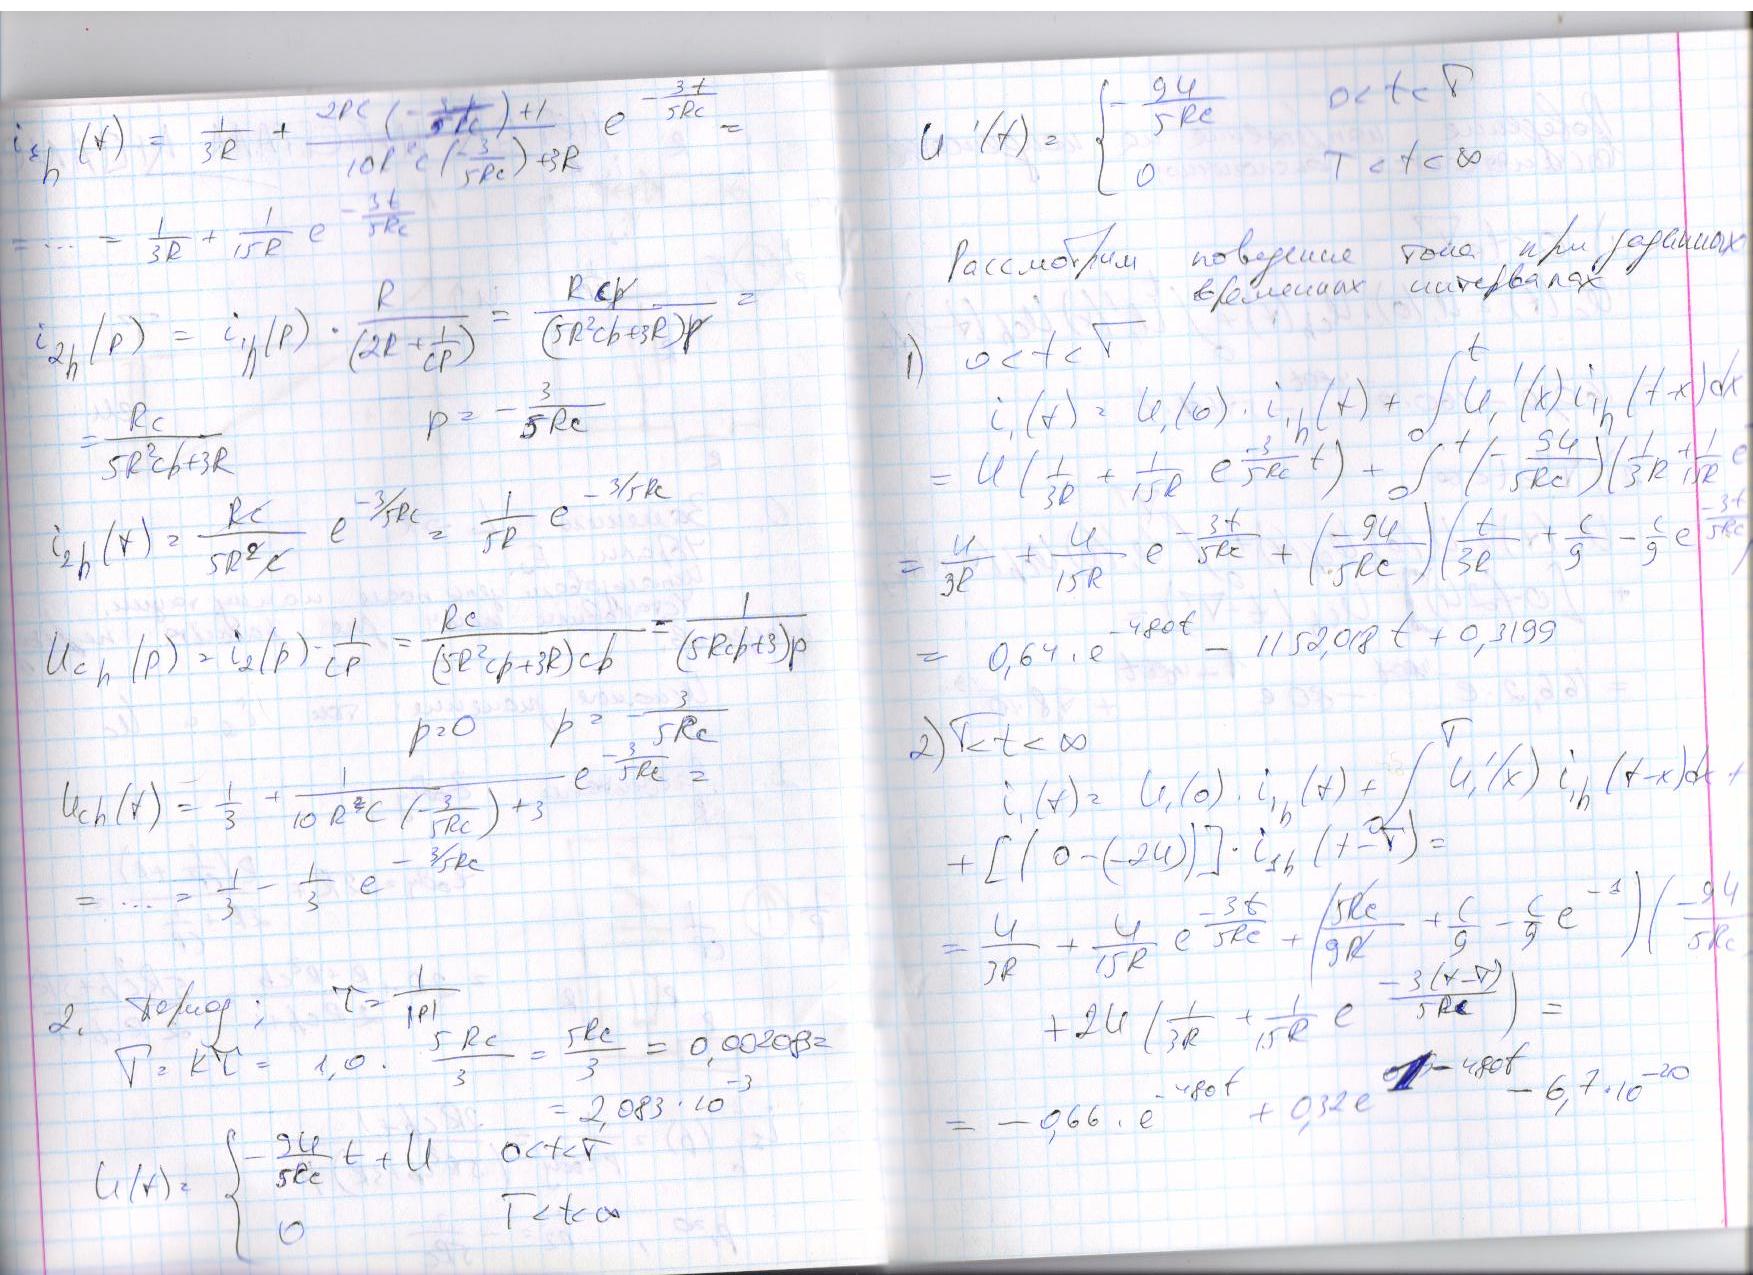 i₁h(t) = 1/(3R) + (2RC(-3/(5RC))+1)/(10R²C(-3/(5RC))+3R) e^(-3t/(5RC)) =
= ... = 1/(3R) + 1/(15R) e^(-3t/(5RC))
i₂h(p) = i₁h(p) · R/(2R + 1/(cp)) = Rcp/((5R²cp+3R)p) =
= Rc/(5R²cp+3R) p = -3/(5Rc)
i₂h(t) = Rc/(5R²c) e^(-3/5Rc) = 1/(5R) e^(-3/5Rc)
Uch(p) = i₂(p) · 1/(cp) = Rc/((5R²cp+3R)cp) = 1/((5Rcp+3)p)
p=0 p = -3/(5Rc)
Uch(t) = 1/3 + 1/(10R²C(-3/(5Rc))+3) e^(-3/(5Rc)) =
= ... = 1/3 - 1/3 e^(-3/5Rc)
2. Период; τ = 1/|p|
T = kτ = 1,0 · 5Rc/3 = 5Rc/3 = 0,002083 =
= 2,083·10⁻³
U(t) = { -9U/(5Rc) t + U 0<t<T
0 T<t<∞
U'(t) = { -9U/(5Rc) 0<t<T
0 T<t<∞
Рассмотрим поведение тока при заданных
временных интервалах
1) 0<t<T
i₁(t) = U₁(0) · i₁h(t) + ∫₀^t U₁'(x) i₁h(t-x)dx
= U(1/(3R) + 1/(15R) e^(-3/(5Rc) t) + ∫₀^t (-9U/(5Rc))(1/(3R) + 1/(15R) e
= U/(3R) + U/(15R) e^(-3t/(5Rc)) + (-9U/(5Rc))(t/(3R) + c/9 - c/9 e^(-3t/(5Rc))
= 0,64·e^(-480t) - 1152,018t + 0,3199
2) T<t<∞
i₁(t) = U₁(0) · i₁h(t) + ∫₀^T U₁'(x) i₁h(t-x)dx +
+ [(0-(-2U))] · i₁h(t-T) =
= U/(3R) + U/(15R) e^(-3t/(5Rc)) + (5Rc/(9R) + c/9 - c/9 e^(-1))(-9U/(5Rc)
+ 2U(1/(3R) + 1/(15R) e^(-3(t-T)/(5Rc))) =
= -0,66·e^(-480t) + 0,32e^(-480t) - 6,7·10⁻²⁰